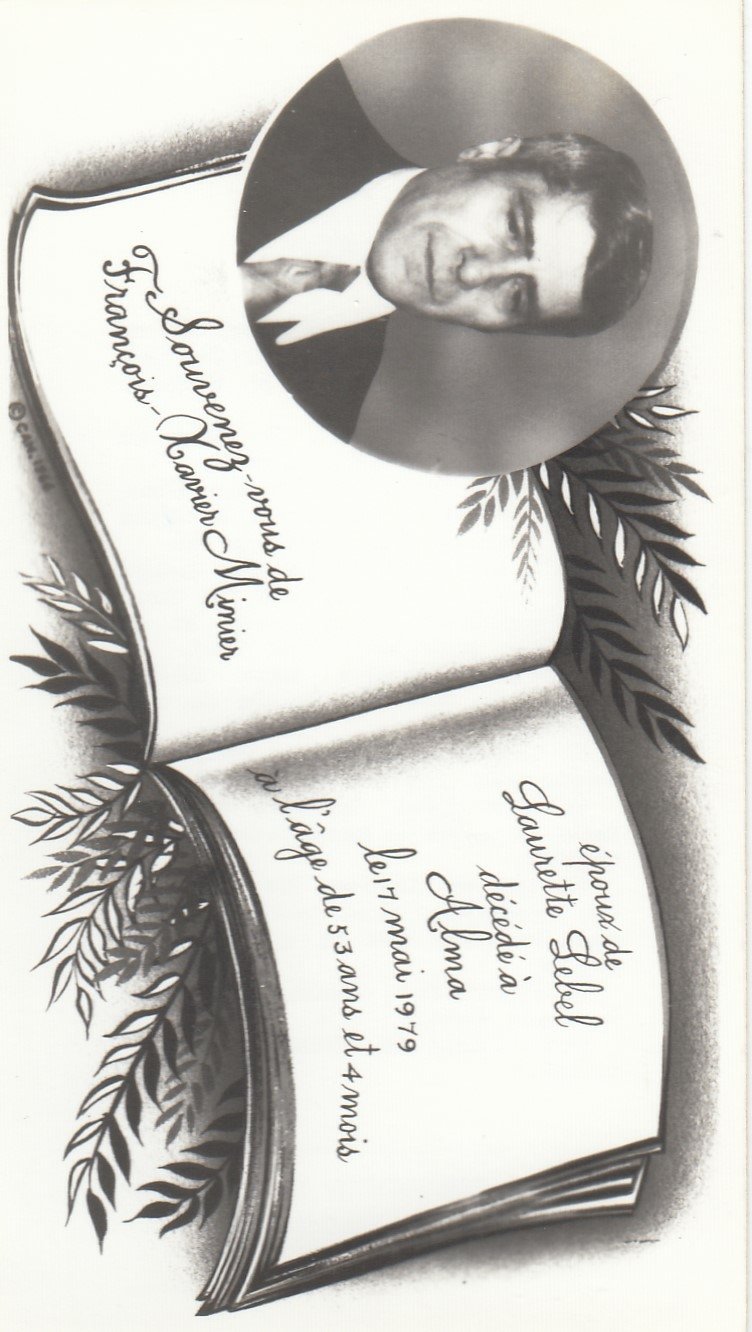 Souvenez-vous de
François-Xavier Minier
époux de
Laurette Lebel
décédé à
Alma
le 17 mai 1979
à l'âge de 53 ans et 4 mois